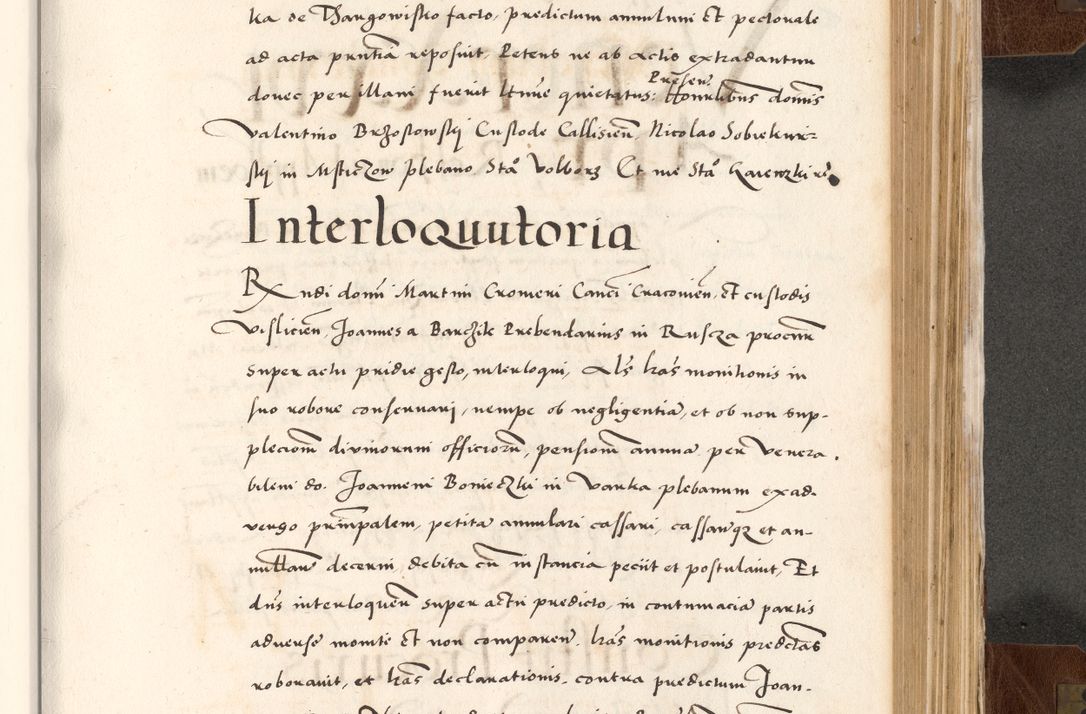 ka de Dangowisko facto, predictum annulum Et pectorale
ad acta pntia reposuit, Petens ne ab actis extradantur
donec per illam fuerit ltime quietatus: Presen. Honrlibus domis
Valentino Brzostowskj Custode Callisien, Nicolao Sobiekur-
skj in Msticzow plebano Sta Volborz Et me Sta
Interloquutoria
Rndi domi Martini Cromeri Canci Cracovien, Et custodis
Vislicien, Joannes a Barchik Prebendarius in Ruscza procur
super actu pridie gesto, interloqui, Als hras monitionis in
suo robore conservari, nempe ob negligentia, et ob non sup-
plecionem divinorum officiorum, pensionem annua, per Venera.
bilem do. Joannem Bonieczki in Varka plebanum exad.
verso prinpalem, petita annulari cassari, cassanqz et an-
nullan decerni, debita cu instancia peciit et postulavit, Et
dns interloquen super actu predicto, in contumacia partis
adverse monite Et non comparen, hras monitionis predctas
roboravit, et hras declarationis, contra predictum Joan-